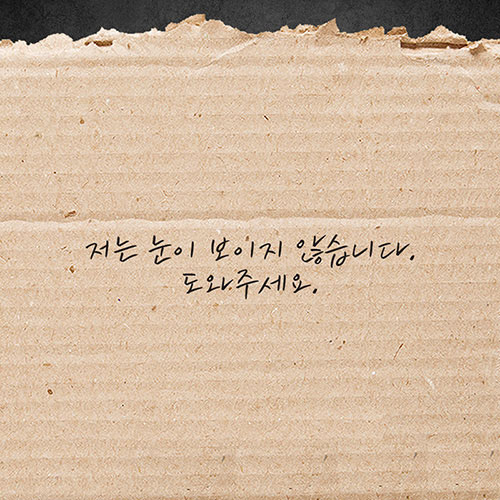 저는 눈이 보이지 않습니다.
도와주세요.